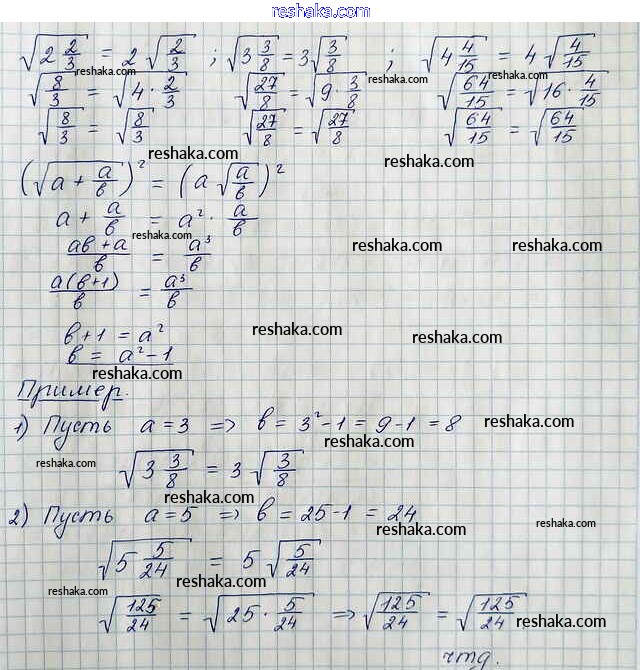 reshaka.com
√(2 2/3) = 2 √(2/3) ; √(3 3/8) = 3 √(3/8) ; √(4 4/15) = 4 √(4/15)
reshaka.com reshaka.com reshaka.com
√(8/3) = √(4 · 2/3) √(27/8) = √(9 · 3/8) √(64/15) = √(16 · 4/15)
reshaka.com
√(8/3) = √(8/3) √(27/8) = √(27/8) √(64/15) = √(64/15)
reshaka.com reshaka.com
(√(a + a/в))² = (a √(a/в))²
reshaka.com
a + a/в = a² · a/в
reshaka.com
(aв + a)/в = a³/в
reshaka.com reshaka.com
a(в+1)/в = a³/в
в + 1 = a²
reshaka.com reshaka.com
в = a² - 1
reshaka.com
Пример.
1) Пусть a = 3 => в = 3² - 1 = 9 - 1 = 8
reshaka.com
reshaka.com
√(3 3/8) = 3 √(3/8)
reshaka.com
reshaka.com
2) Пусть a = 5 => в = 25 - 1 = 24
reshaka.com
√(5 5/24) = 5 √(5/24)
reshaka.com
reshaka.com
reshaka.com
√(125/24) = √(25 · 5/24) => √(125/24) = √(125/24)
reshaka.com
reshaka.com
чтд.